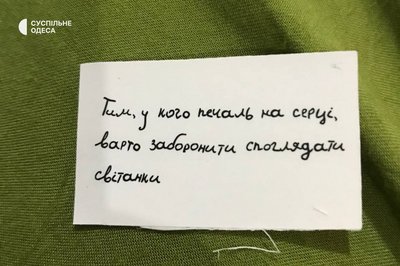 СУСПІЛЬНЕ
ОДЕСА
Тим, у кого печаль на серці,
варто заборонити споглядати
світанки